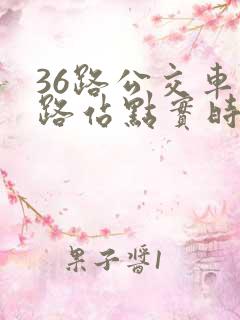 36路公交車
路佔點實時
果子醬1